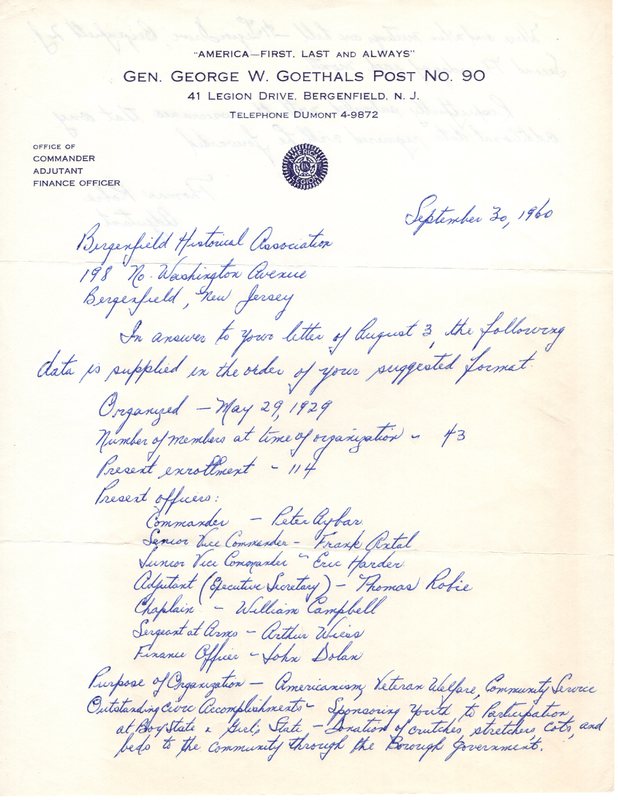 "AMERICA—FIRST, LAST AND ALWAYS"
GEN. GEORGE W. GOETHALS POST NO. 90
41 LEGION DRIVE, BERGENFIELD, N. J.
TELEPHONE DUMONT 4-9872
OFFICE OF
COMMANDER
ADJUTANT
FINANCE OFFICER
AMERICAN LEGION
US
September 30, 1960
Bergenfield Historical Association
198 No. Washington Avenue
Bergenfield, New Jersey
In answer to your letter of August 3, the following
data is supplied in the order of your suggested format.
Organized — May 29, 1929
Number of members at time of organization - 43
Present enrollment - 114
Present officers:
Commander - Peter Aybar
Senior Vice Commander - Frank Antal
Junior Vice Commander - Eric Harder
Adjutant (Executive Secretary) - Thomas Robie
Chaplain - William Campbell
Sergeant at Arms - Arthur Wiess
Finance Officer - John Dolan
Purpose of Organization - Americanism, Veteran Welfare, Community Service
Outstanding civic Accomplishments - Sponsoring Youth to Participation
at Boy State & Girls State - Donation of crutches, stretchers, cots, and
beds to the community through the Borough government.